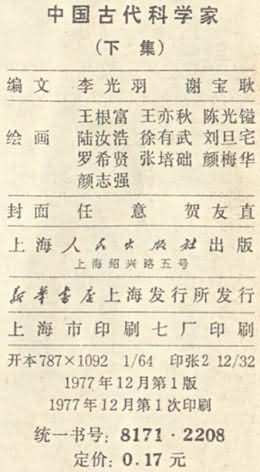 中国古代科学家
（下集）
编文 李光羽 谢宝耿
王根富 王亦秋 陈光镒
绘画 陆汝浩 徐有武 刘旦宅
罗希贤 张培础 颜梅华
颜志强
封面 任意 贺友直
上海人民出版社出版
上海绍兴路五号
新华书店上海发行所发行
上海市印刷七厂印刷
开本787×1092 1/64 印张2 12/32
1977年12月第1版
1977年12月第1次印刷
统一书号：8171·2208
定价：0.17元